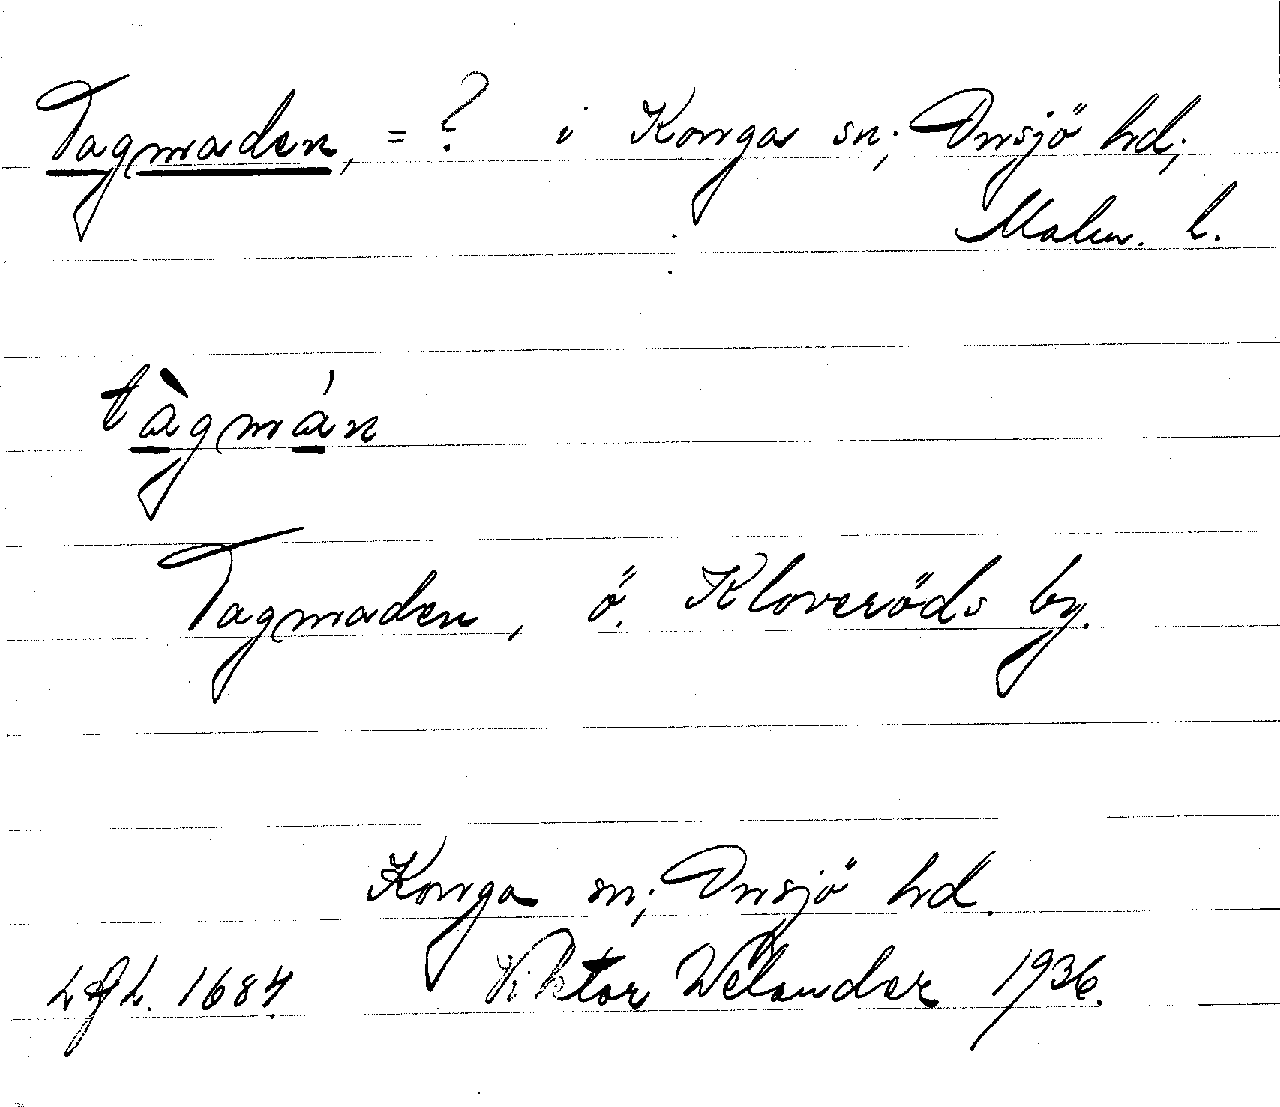 Tagmaden, = ? i Konga sn; Onsjö hd;
Malm. l.
tàgmán
Tagmaden, ö. Kloveröds by.
Konga sn; Onsjö hd.
1684. Viktor Welander 1936.